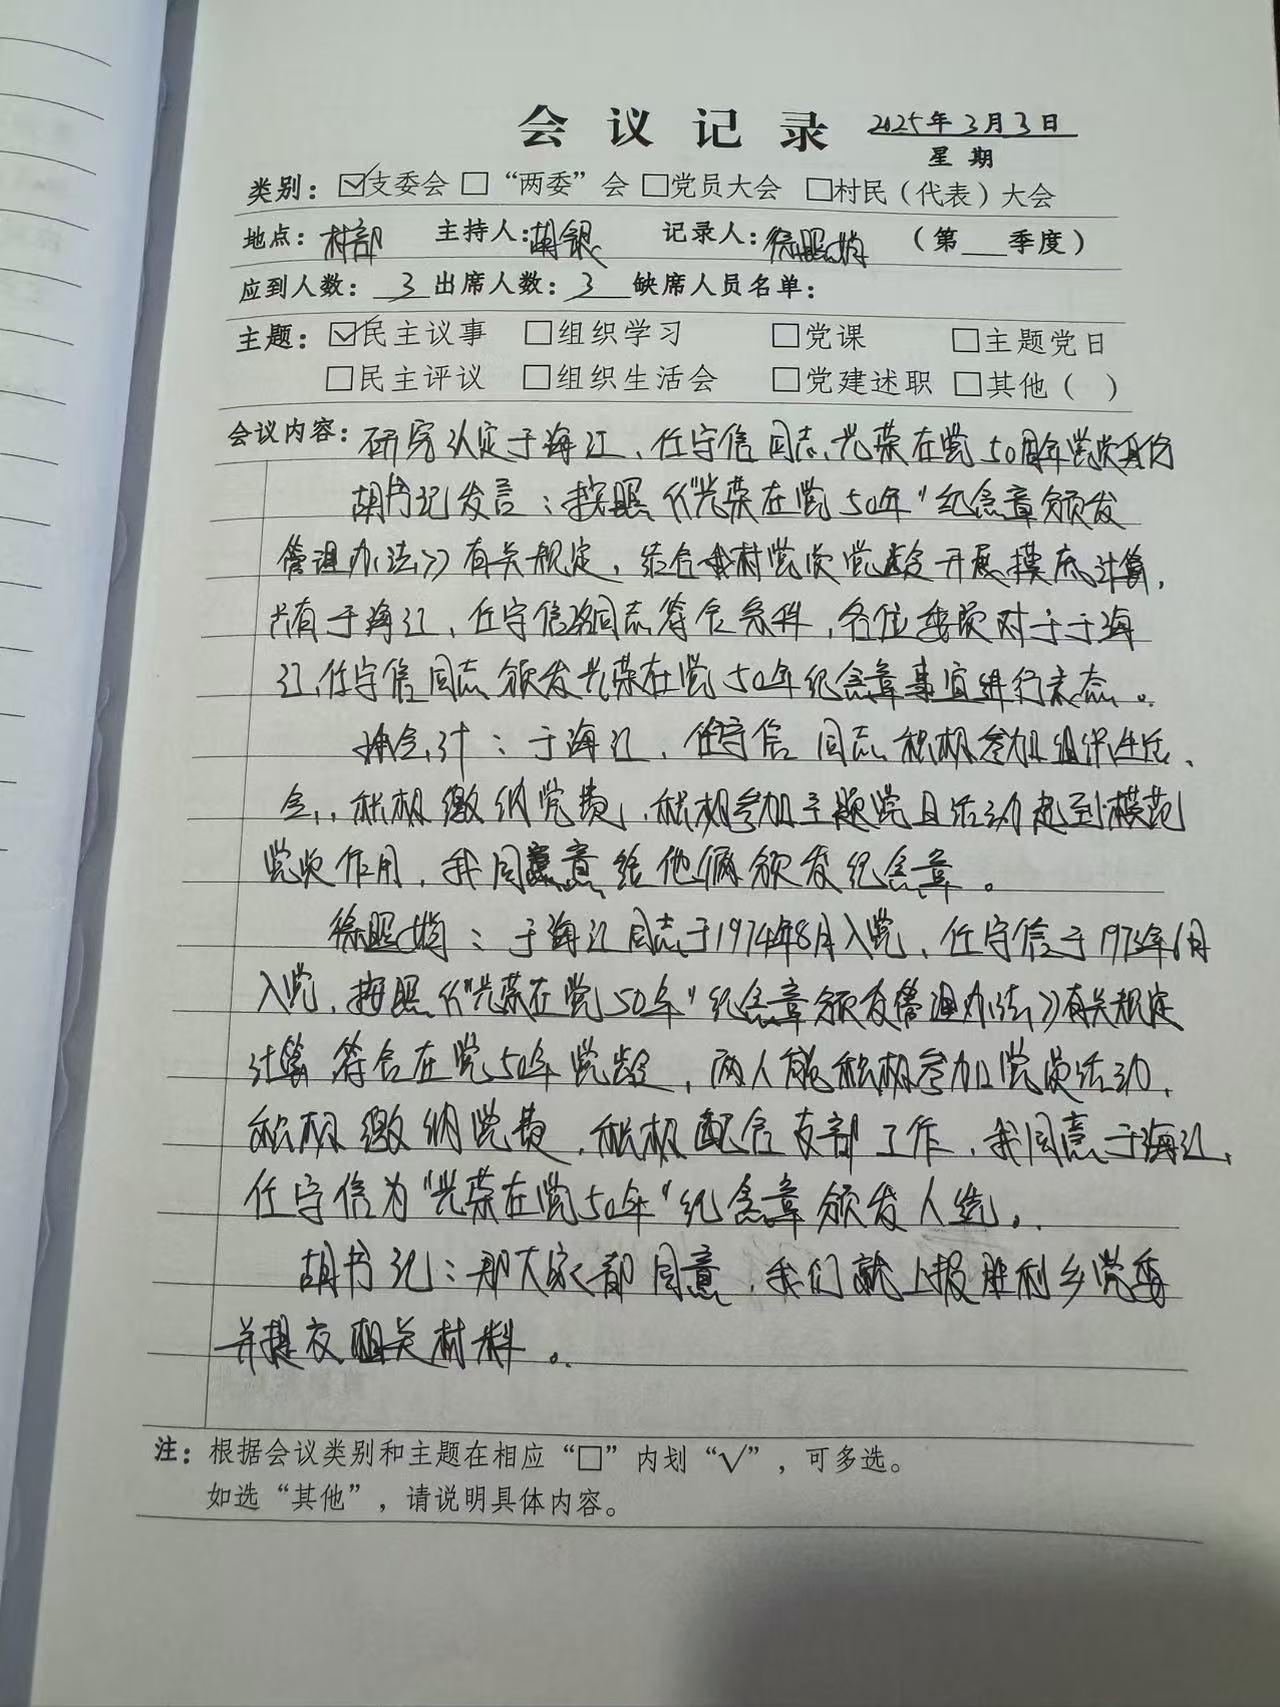 会议记录 2025年3月3日
星期
类别：☑支委会 □“两委”会 □党员大会 □村民（代表）大会
地点：村部 主持人：胡银 记录人：徐照娟 （第___季度）
应到人数：3 出席人数：3 缺席人员名单：
主题：☑民主议事 □组织学习 □党课 □主题党日
□民主评议 □组织生活会 □党建述职 □其他（ ）
会议内容：研究认定于海江、任守信同志光荣在党50周年党员身份
胡书记发言：按照《“光荣在党50年”纪念章颁发
管理办法》有关规定，结合我村党员党龄开展摸底计算，
共有于海江、任守信同志符合条件，各位委员对于于海
江、任守信同志颁发光荣在党50年纪念章事宜进行表态。
会计：于海江、任守信同志积极参加组织生活
会，积极缴纳党费，积极参加主题党日活动起到模范
党员作用，我同意给他俩颁发纪念章。
徐照娟：于海江同志于1974年8月入党，任守信于1973年6月
入党，按照《“光荣在党50年”纪念章颁发管理办法》有关规定
计算符合在党50年党龄，两人能积极参加党员活动，
积极缴纳党费，积极配合支部工作，我同意于海江、
任守信为“光荣在党50年”纪念章颁发人选。
胡书记：那大家都同意，我们就上报胜利乡党委
并提交相关材料。
注：根据会议类别和主题在相应“□”内划“√”，可多选。
如选“其他”，请说明具体内容。